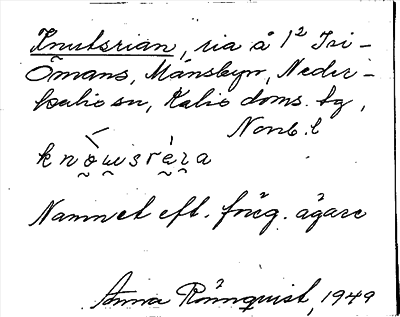 Knutsrian, ria å 1² Tri-
Ömans, Månsbyn, Neder-
kalix sn, Kalix doms. tg,
Norrb. l
Namnet eft. föreg. ägare
Anna Rönnquist, 1949